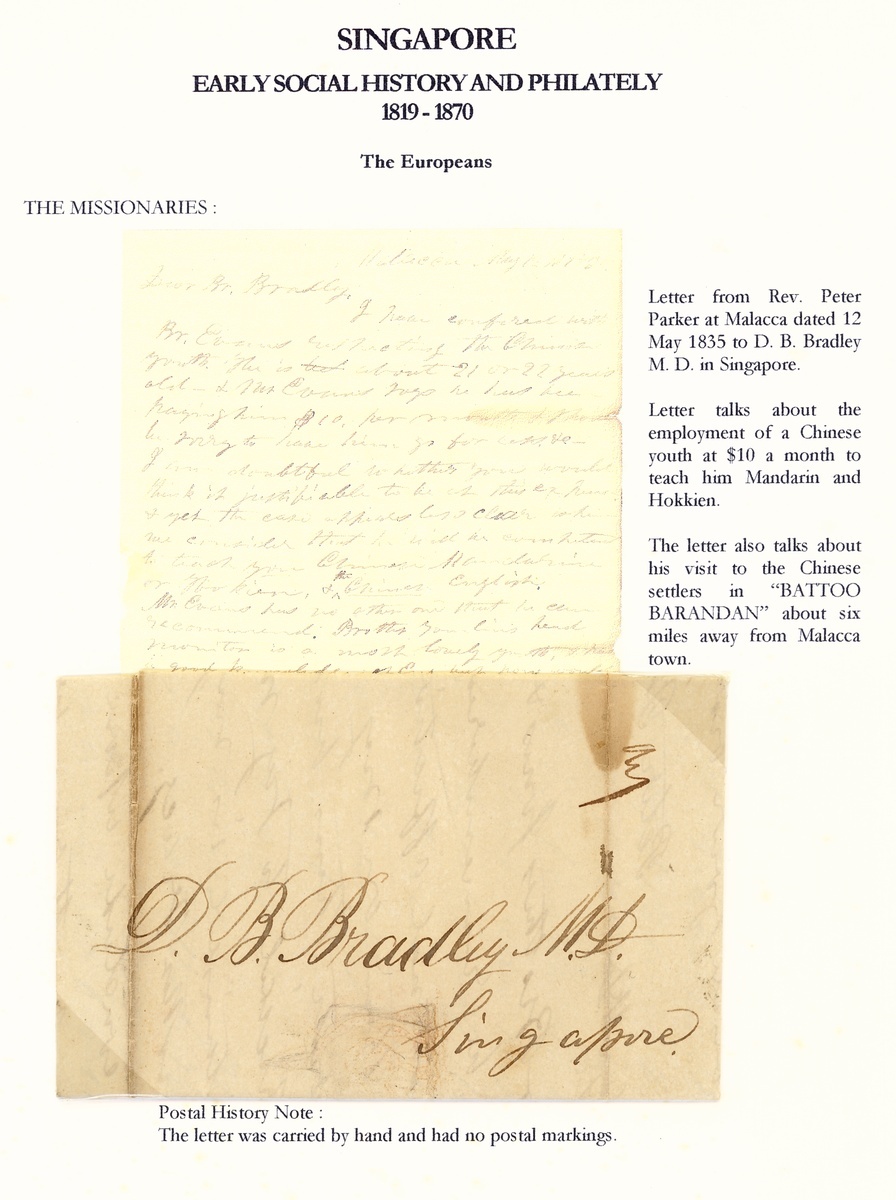 SINGAPORE
EARLY SOCIAL HISTORY AND PHILATELY
1819 - 1870
The Europeans
THE MISSIONARIES :
Malacca
Dear Br. Bradley,
I have confered with
Br. Evans respecting the Chinese
youth. He is about 21 or 22 years
old - & Mr. Evans says he has bee
paying him $10, per month & should
be sorry to have him go for
I am doubtful whether you would
think it justifiable to be at this expense
& yet the case appears less clear when
we consider that he will be competent
to teach you Chinese Mandarine
or Hookien, & the Chinese English.
Mr. Evans has no other one that he can
recommend. Brother head
monitor is a most lovely youth,
Letter from Rev. Peter
Parker at Malacca dated 12
May 1835 to D. B. Bradley
M. D. in Singapore.
Letter talks about the
employment of a Chinese
youth at $10 a month to
teach him Mandarin and
Hokkien.
The letter also talks about
his visit to the Chinese
settlers in “BATTOO
BARANDAN” about six
miles away from Malacca
town.
D. B. Bradley M.D.
Singapore.
Postal History Note :
The letter was carried by hand and had no postal markings.